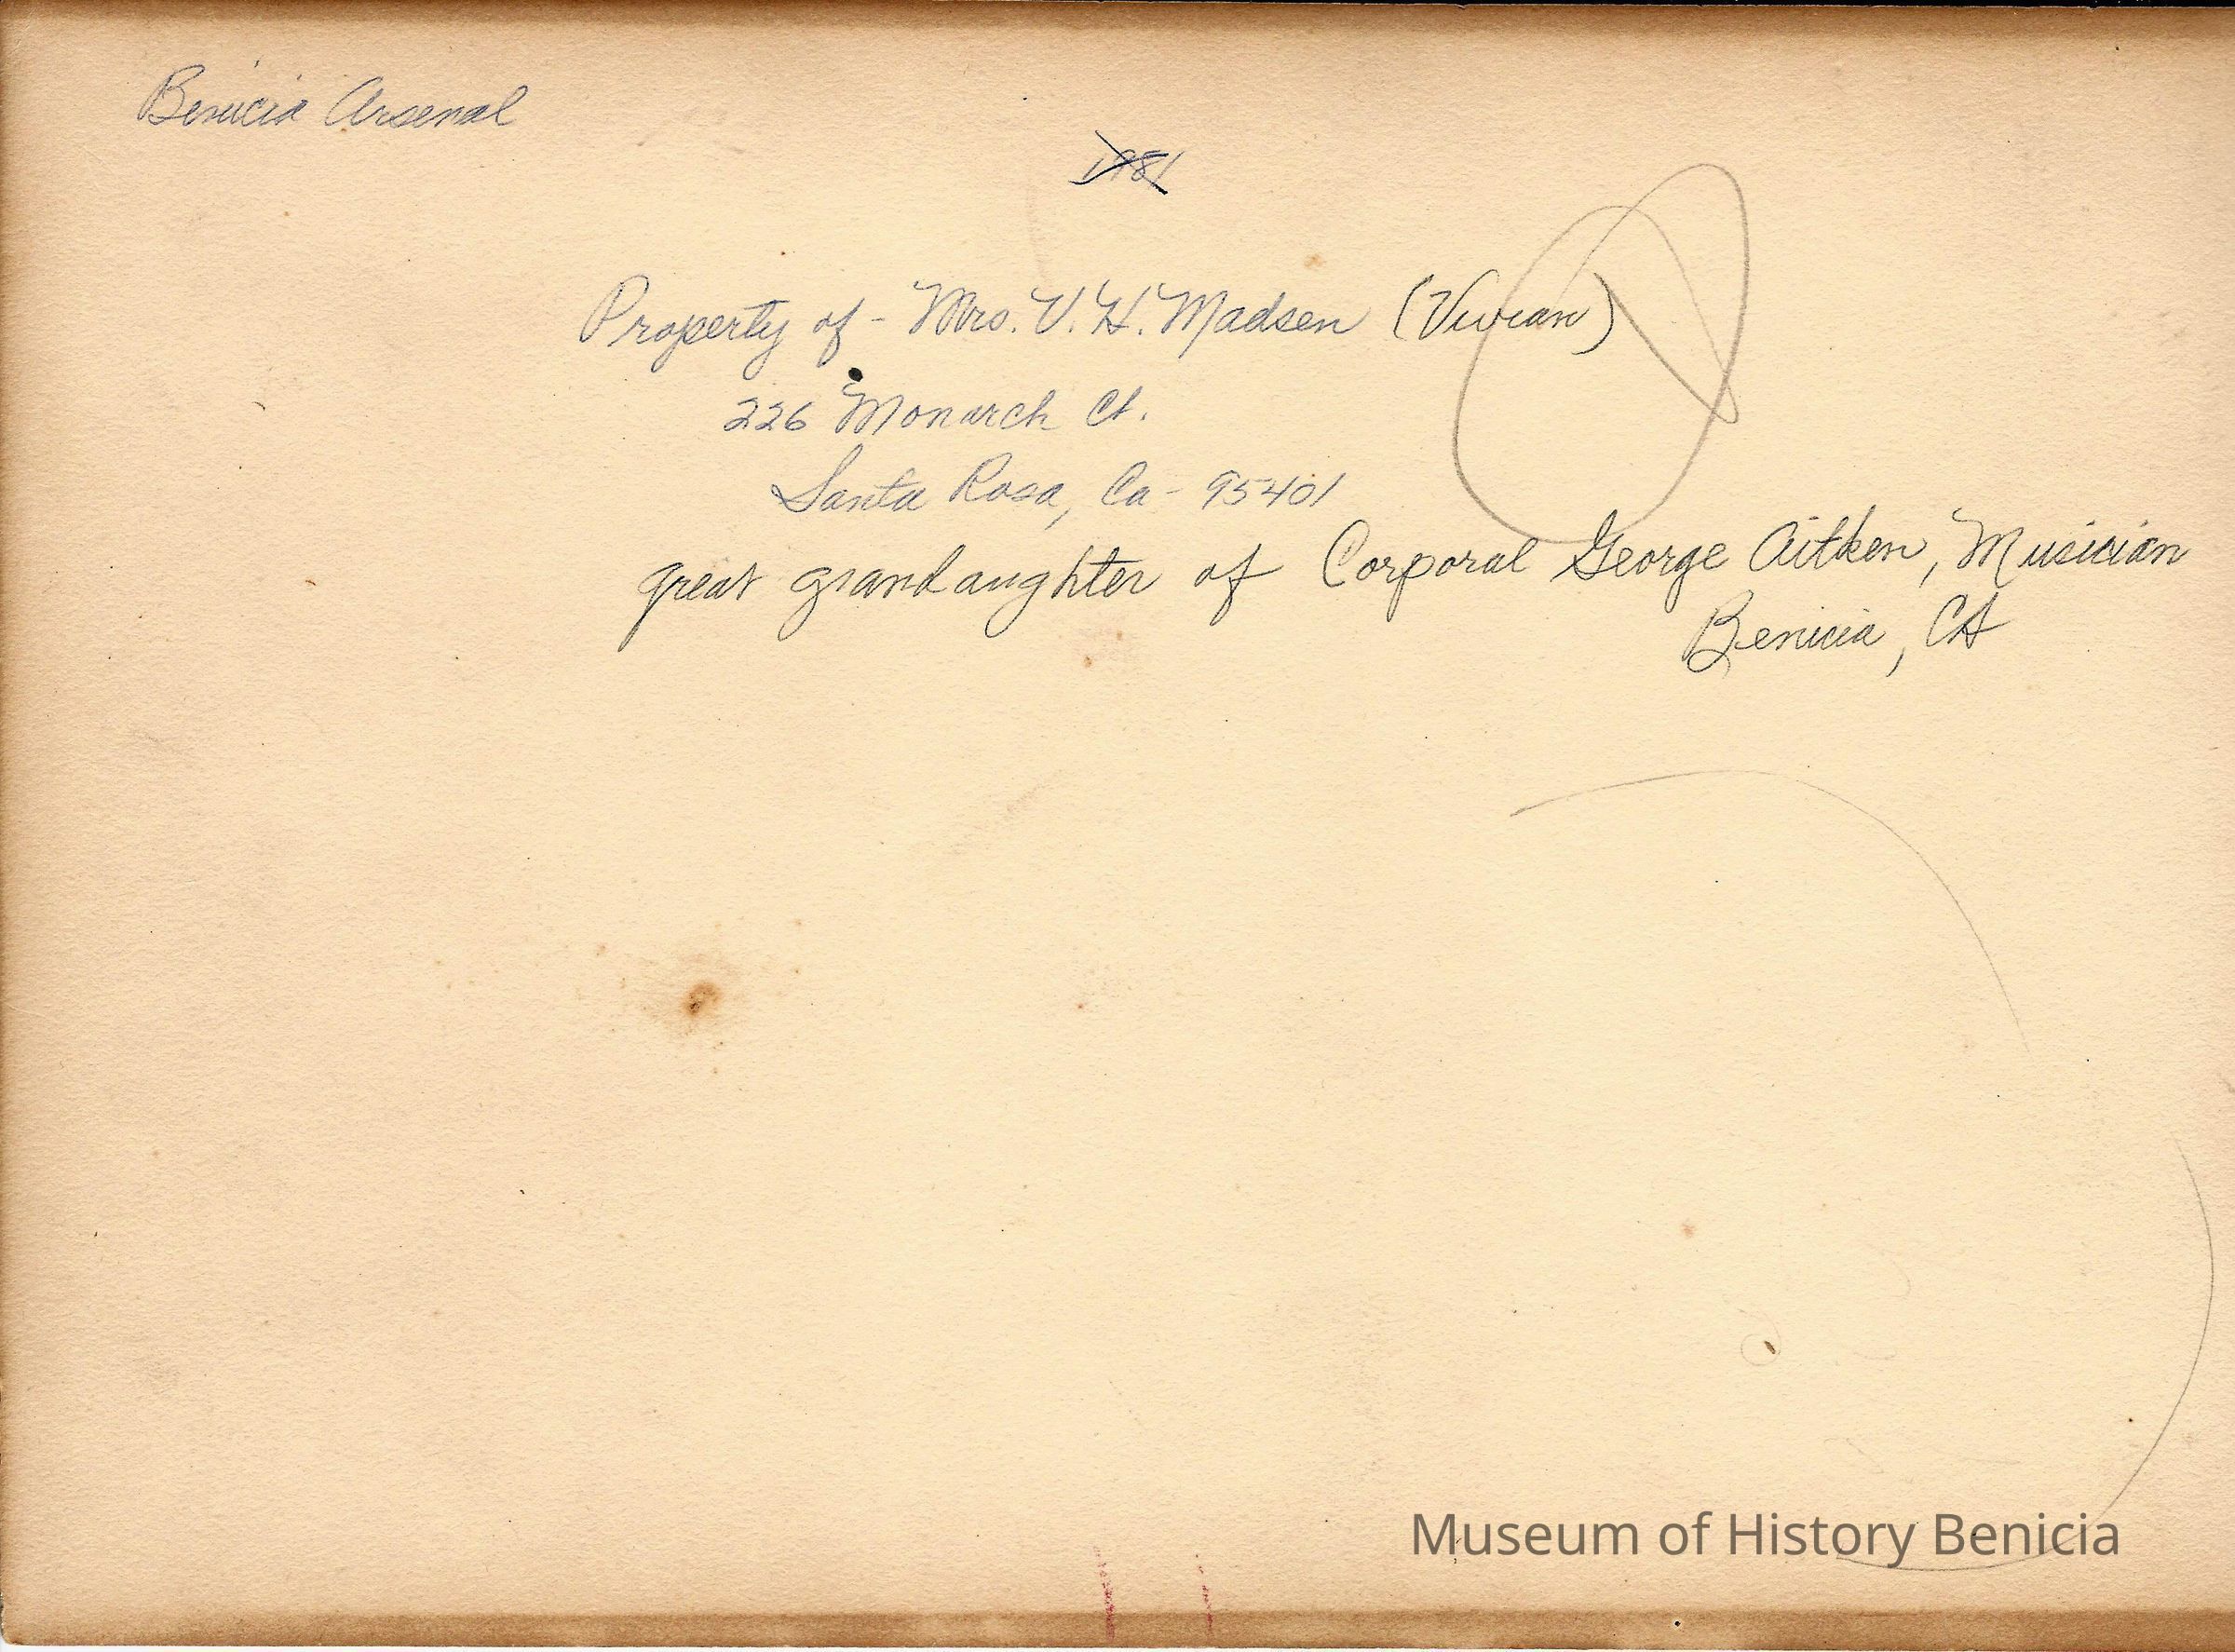 Benicia Arsenal
1981
Property of - Mrs. V. H. Madsen (Vivian)
226 Monarch Ct.
Santa Rosa, Ca - 95401
great grandaughter of Corporal George Aitken, Musician
Benicia, CA
Museum of History Benicia